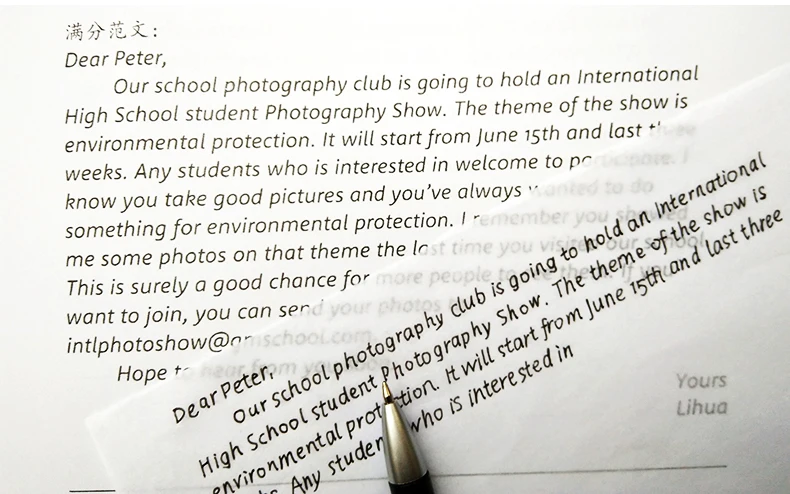 满分范文:
Dear Peter,
Our school photography club is going to hold an International
High School student Photography Show. The theme of the show is
environmental protection. It will start from June 15th and last three
weeks. Any students who is interested in welcome to participate. I
know you take good pictures and you've always wanted to do
something for environmental protection. I remember you showed
me some photos on that theme the last time you visited our school
This is surely a good chance for more people to see them. If you
want to join, you can send your photos
intlphotoshow@gmschool.com.
Hope to hear from you
Yours
Lihua
Dear Peter,
Our school photography club is going to hold an International
High School student Photography Show. The theme of the show is
environmental protection. It will start from June 15th and last three
Any student who is interested in